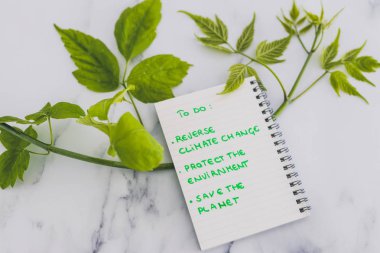 TO DO:
• REVERSE
CLIMATE CHANGE
• PROTECT THE
ENVIRNMENT
• SAVE THE
PLANET